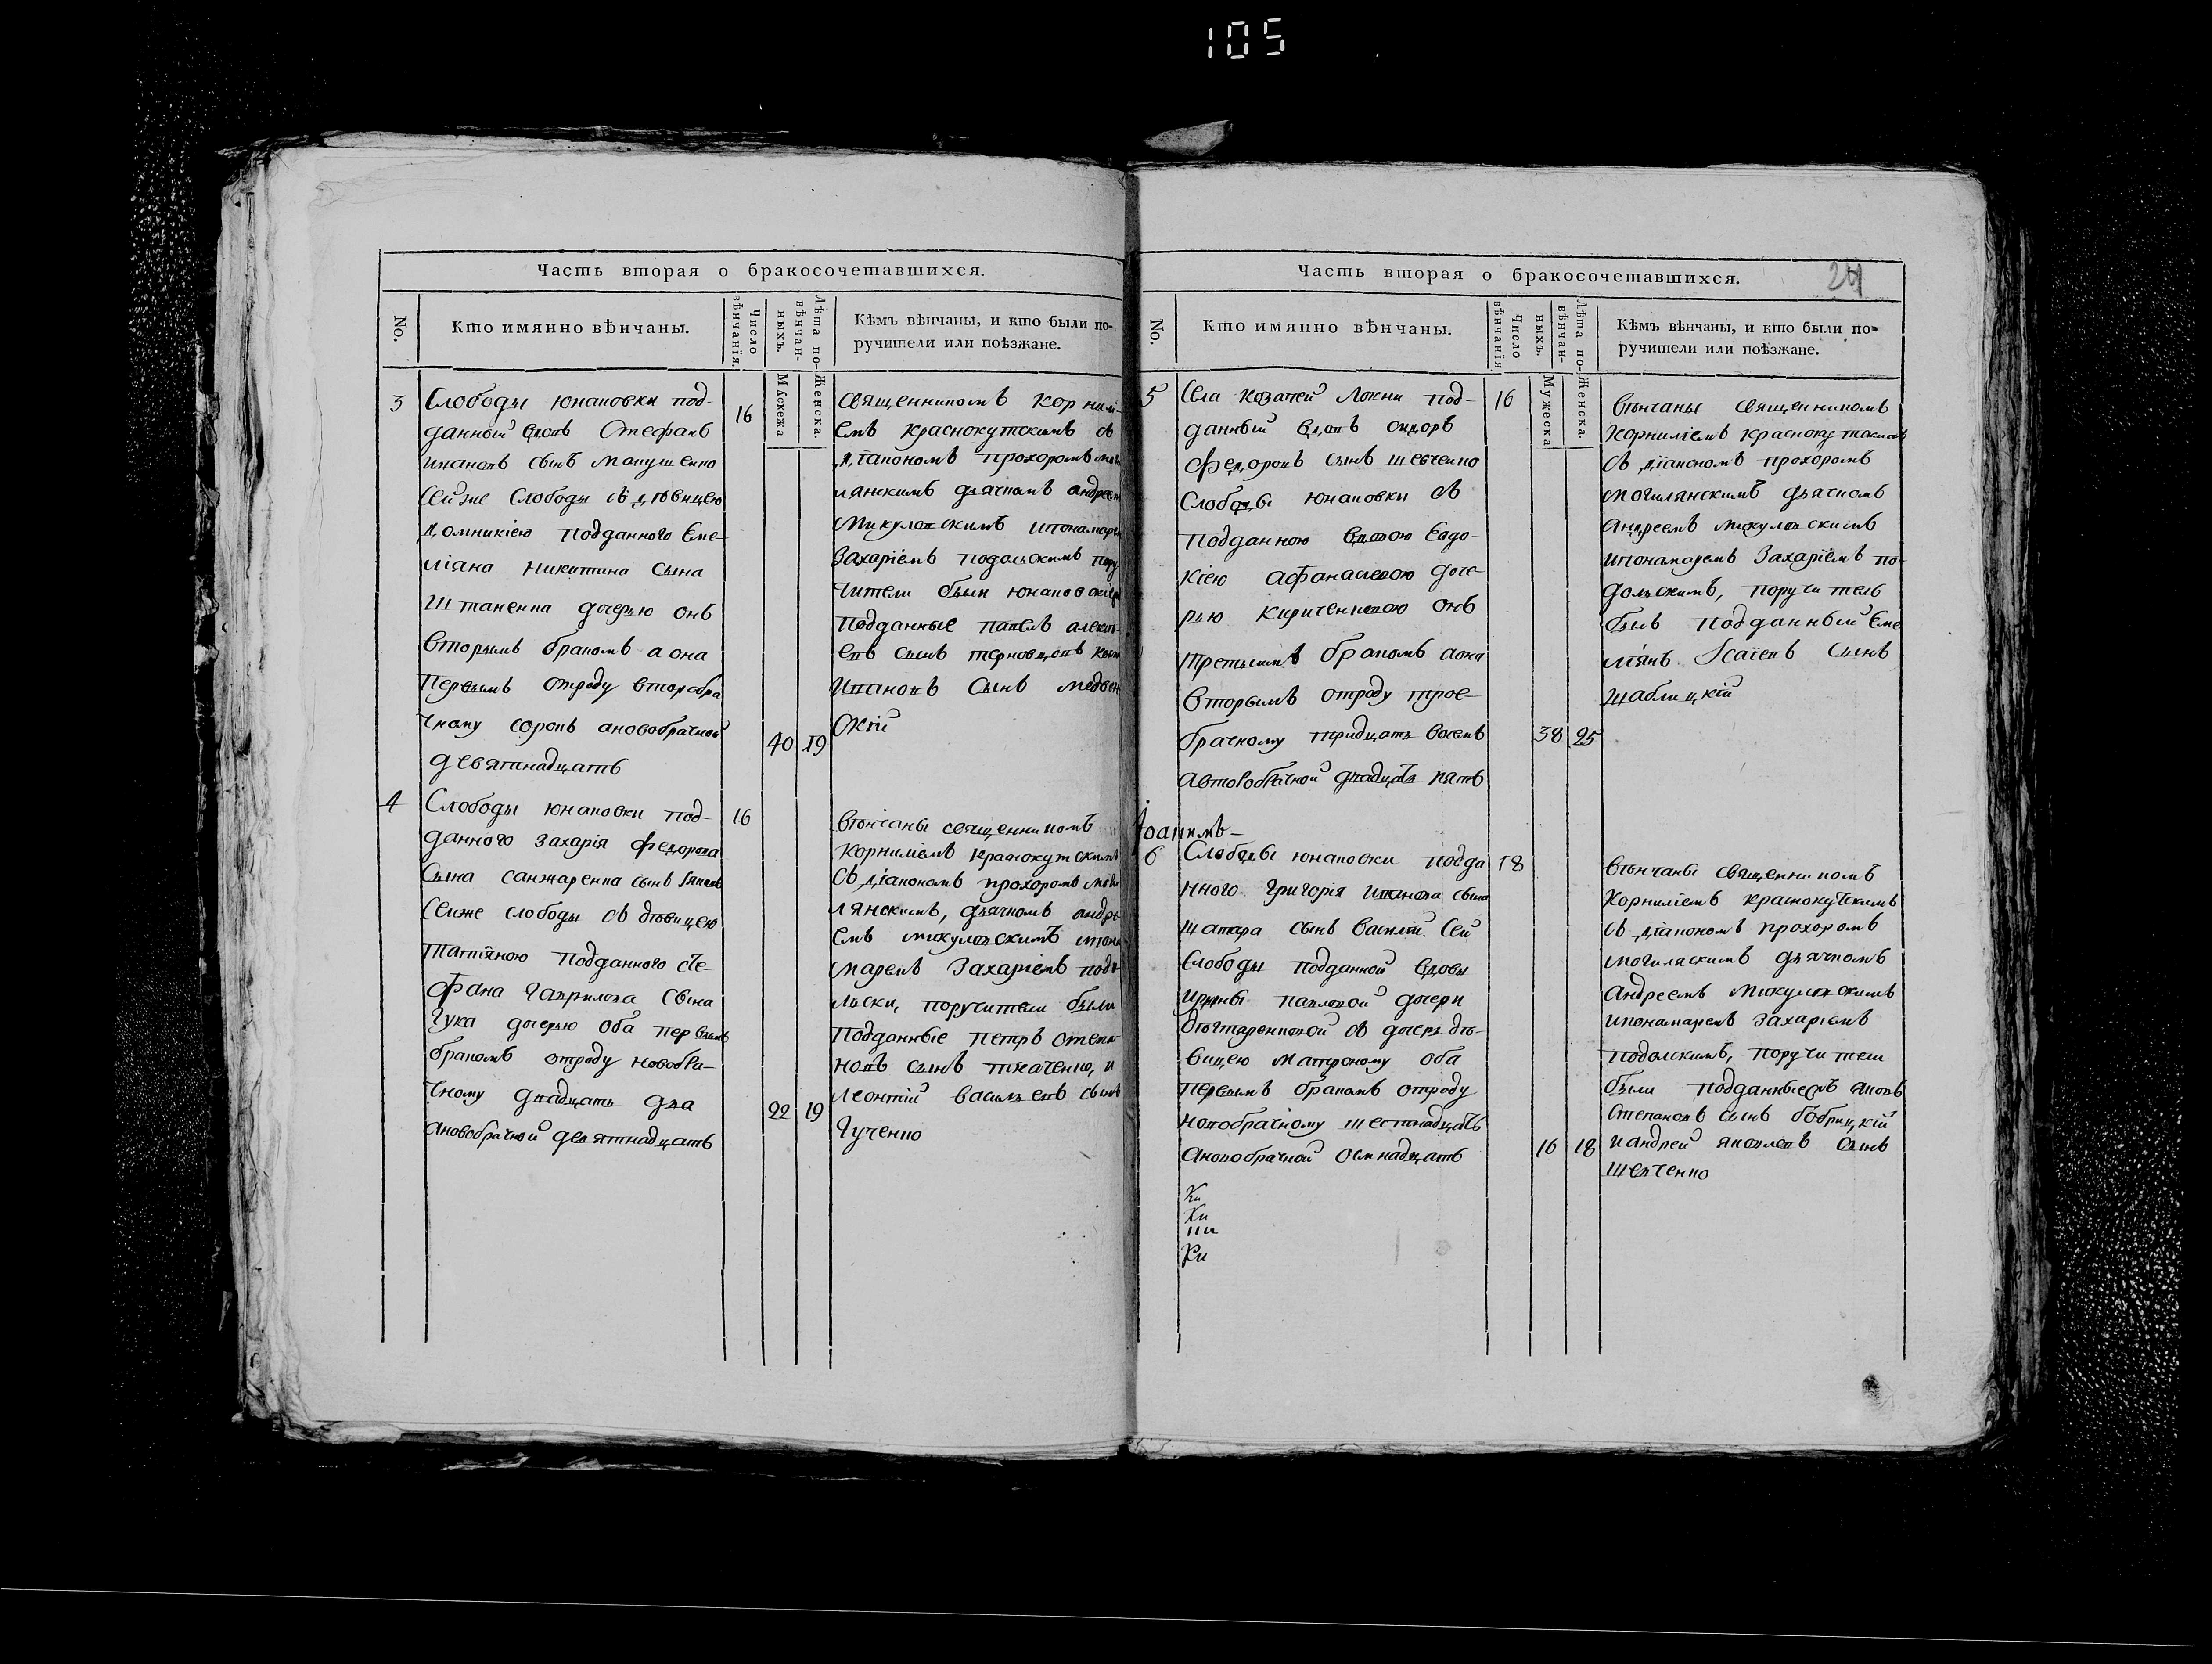 105
Часть вторая о бракосочетавшихся.
No.
Кто имянно вѣнчаны.
Число вѣнчанія.
Лѣта повѣнчанныхъ.
Мужеска
Женска.
Кѣмъ вѣнчаны, и кто были поручители или поѣзжане.
3
Слободы Юнаковки под-
данный вдовъ Стефанъ
Ивановъ сынъ Макушенко
сейже Слободы съ дѣвицею
Домникіею подданного Еме-
ліана Никитина сына
Штаненка дочерью онъ
вторымъ бракомъ а она
первымъ отроду второбра
чному сорокъ ановобрачной
девятнадцать
16
40 19
Священникомъ Корнилі-
емъ Краснокутскимъ съ
діакономъ Прохоромъ
лянскимъ дьячкомъ Андреем
Микуловскимъ
Захаріемъ Подольскимъ
чители были
Подданные Павелъ
евъ сынъ Терновцовъ
Ивановъ сынъ
скій
4
Слободы Юнаковки под-
данного Захарія Федорова
сына Санжаренка сынъ
сейже слободы съ дѣвицею
Татіяною подданного Сте-
фана Гаврилова сына
Гука дочерью оба первымъ
бракомъ отроду новобра-
чному двадцать два
ановобрачной девятнадцать
16
22 19
вѣнчаны священникомъ
Корниліемъ Краснокутскимъ
съ діакономъ Прохоромъ
лянскимъ, дьячкомъ Андре
емъ Микуловскимъ
маремъ Захаріемъ подо
льски, поручители были
Подданные Петръ
новъ сынъ Ткаченко, и
Леонтій Васильевъ сынъ
Гученко
Часть вторая о бракосочетавшихся.
24
No.
Кто имянно вѣнчаны.
Число вѣнчанія
Лѣта повѣнчанныхъ.
Мужеска
Женска.
Кѣмъ вѣнчаны, и кто были поручители или поѣзжане.
5
Села Козачей Локни под-
данный вдовъ Сидоръ
Федоровъ сынъ Шевченко
Слободы Юнаковки съ
подданною вдовою Евдо-
кіею Афанасиевою доче-
рью Кириченковою онъ
третьимъ бракомъ аона
вторымъ отроду трое-
брачному тридцать восемъ
автобрачной двадцать пять
16
38 25
вѣнчаны священникомъ
Корниліемъ Краснокутскимъ
съ діакономъ Прохоромъ
Могилянскимъ дьячкомъ
Андреемъ Микуловскимъ
ипонамаремъ Захаріемъ По-
дольскимъ, поручитель
былъ подданный Еме
ліянъ Исаіевъ сынъ
Шаблицкій
Іоакимъ –
6
Слободы Юнаковки подда
нного Григорія Иванова сына
Шапара сынъ Василій сей
слободы подданной вдовы
Ирины Павловой дочери
Дѣхтаренковой съ дочерь дѣ-
вицею Матроному оба
первымъ бракомъ отроду
новобрачному шестнадцать
ановобрачной осмнадцать
18
16 18
вѣнчаны священникомъ
Корниліемъ Краснокутскимъ
съ діакономъ Прохоромъ
Могиляскимъ дьячкомъ
Андреемъ Микуловскимъ
ипонамаремъ Захаріемъ
Подолскимъ, поручители
были подданные
Степановъ сынъ Бобрицкій
и Андрей Яковлевъ сынъ
Шевченко
Ки
Ки
Ки